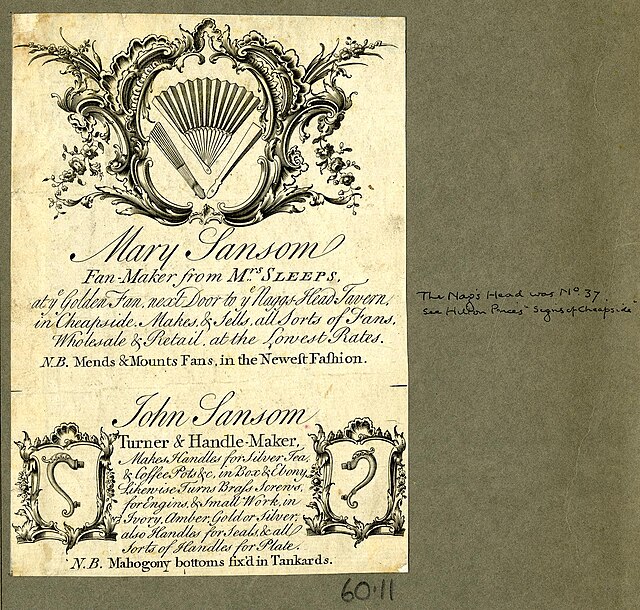 Mary Sansom
Fan-Maker from Mrs SLEEPS,
at ye Golden Fan, next Door to ye Naggs Head Tavern,
in Cheapside. Makes, & Sells, all Sorts of Fans,
Wholesale & Retail, at the Lowest Rates.
N.B. Mends & Mounts Fans, in the Newest Fashion.
John Sansom
Turner & Handle-Maker,
Makes Handles for Silver Tea,
& Coffee Pots &c, in Box & Ebony,
Likewise Turns Brass Screws,
for Engins, & Small Work, in
Ivory, Amber, Gold or Silver,
also Handles for Seals, & all
Sorts of Handles for Plate.
N.B. Mahogony bottoms fix'd in Tankards.
The Nag's Head was No 37.
See Hilton Prices' "Signs of Cheapside"
60.11